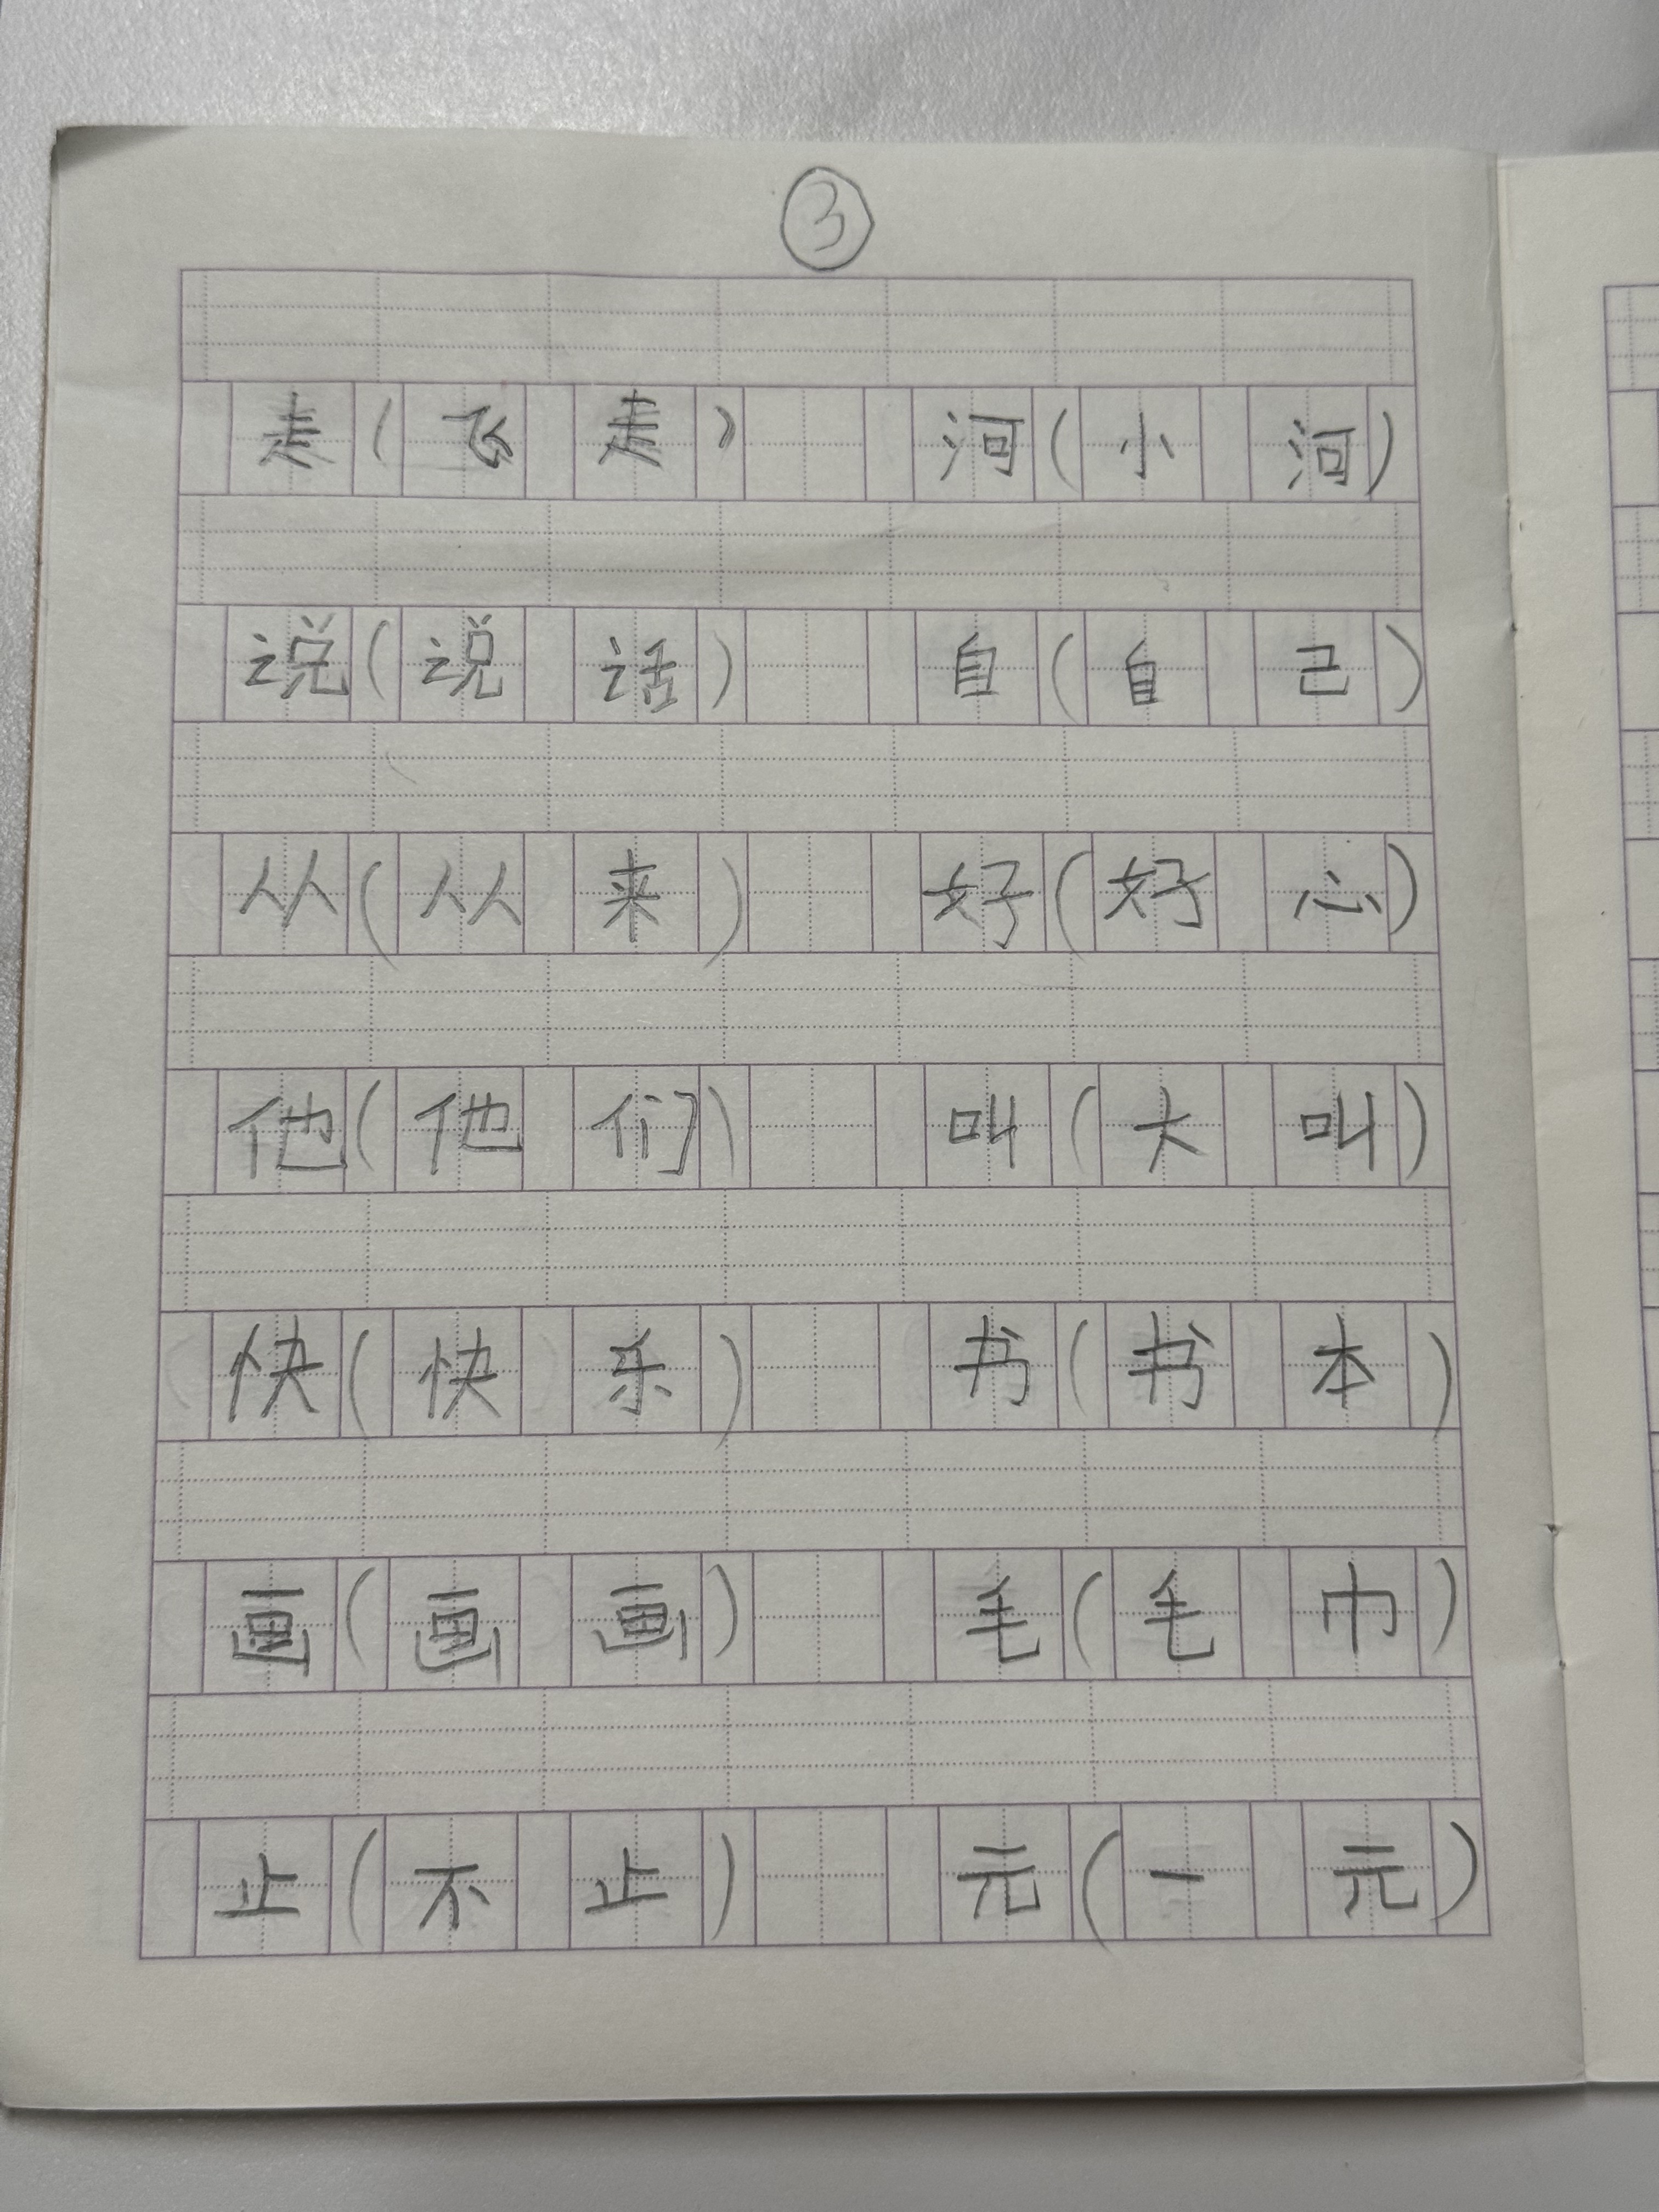 ③
走(飞走) 河(小河)
说(说话) 自(自己)
从(从来) 好(好心)
他(他们) 叫(大叫)
快(快乐) 书(书本)
画(画画) 毛(毛巾)
止(不止) 元(一元)